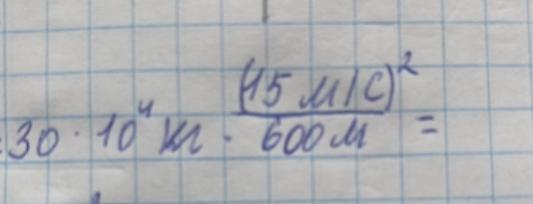 30 · 10⁴ кг · (15 м/с)² / 600 м =